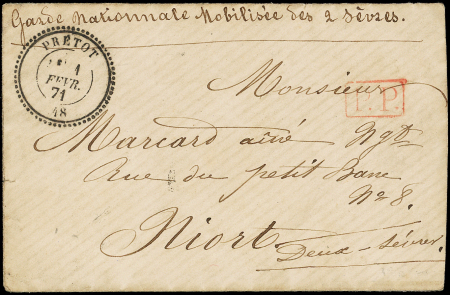 Garde Nationale Mobilisée des 2 Sèvres.
PRÉTOT
1
FEVR.
71
48
Monsieur
P.P.
Marcard aîné Ngt
Rue du petit banc
No 8.
Niort.
Deux-Sèvres